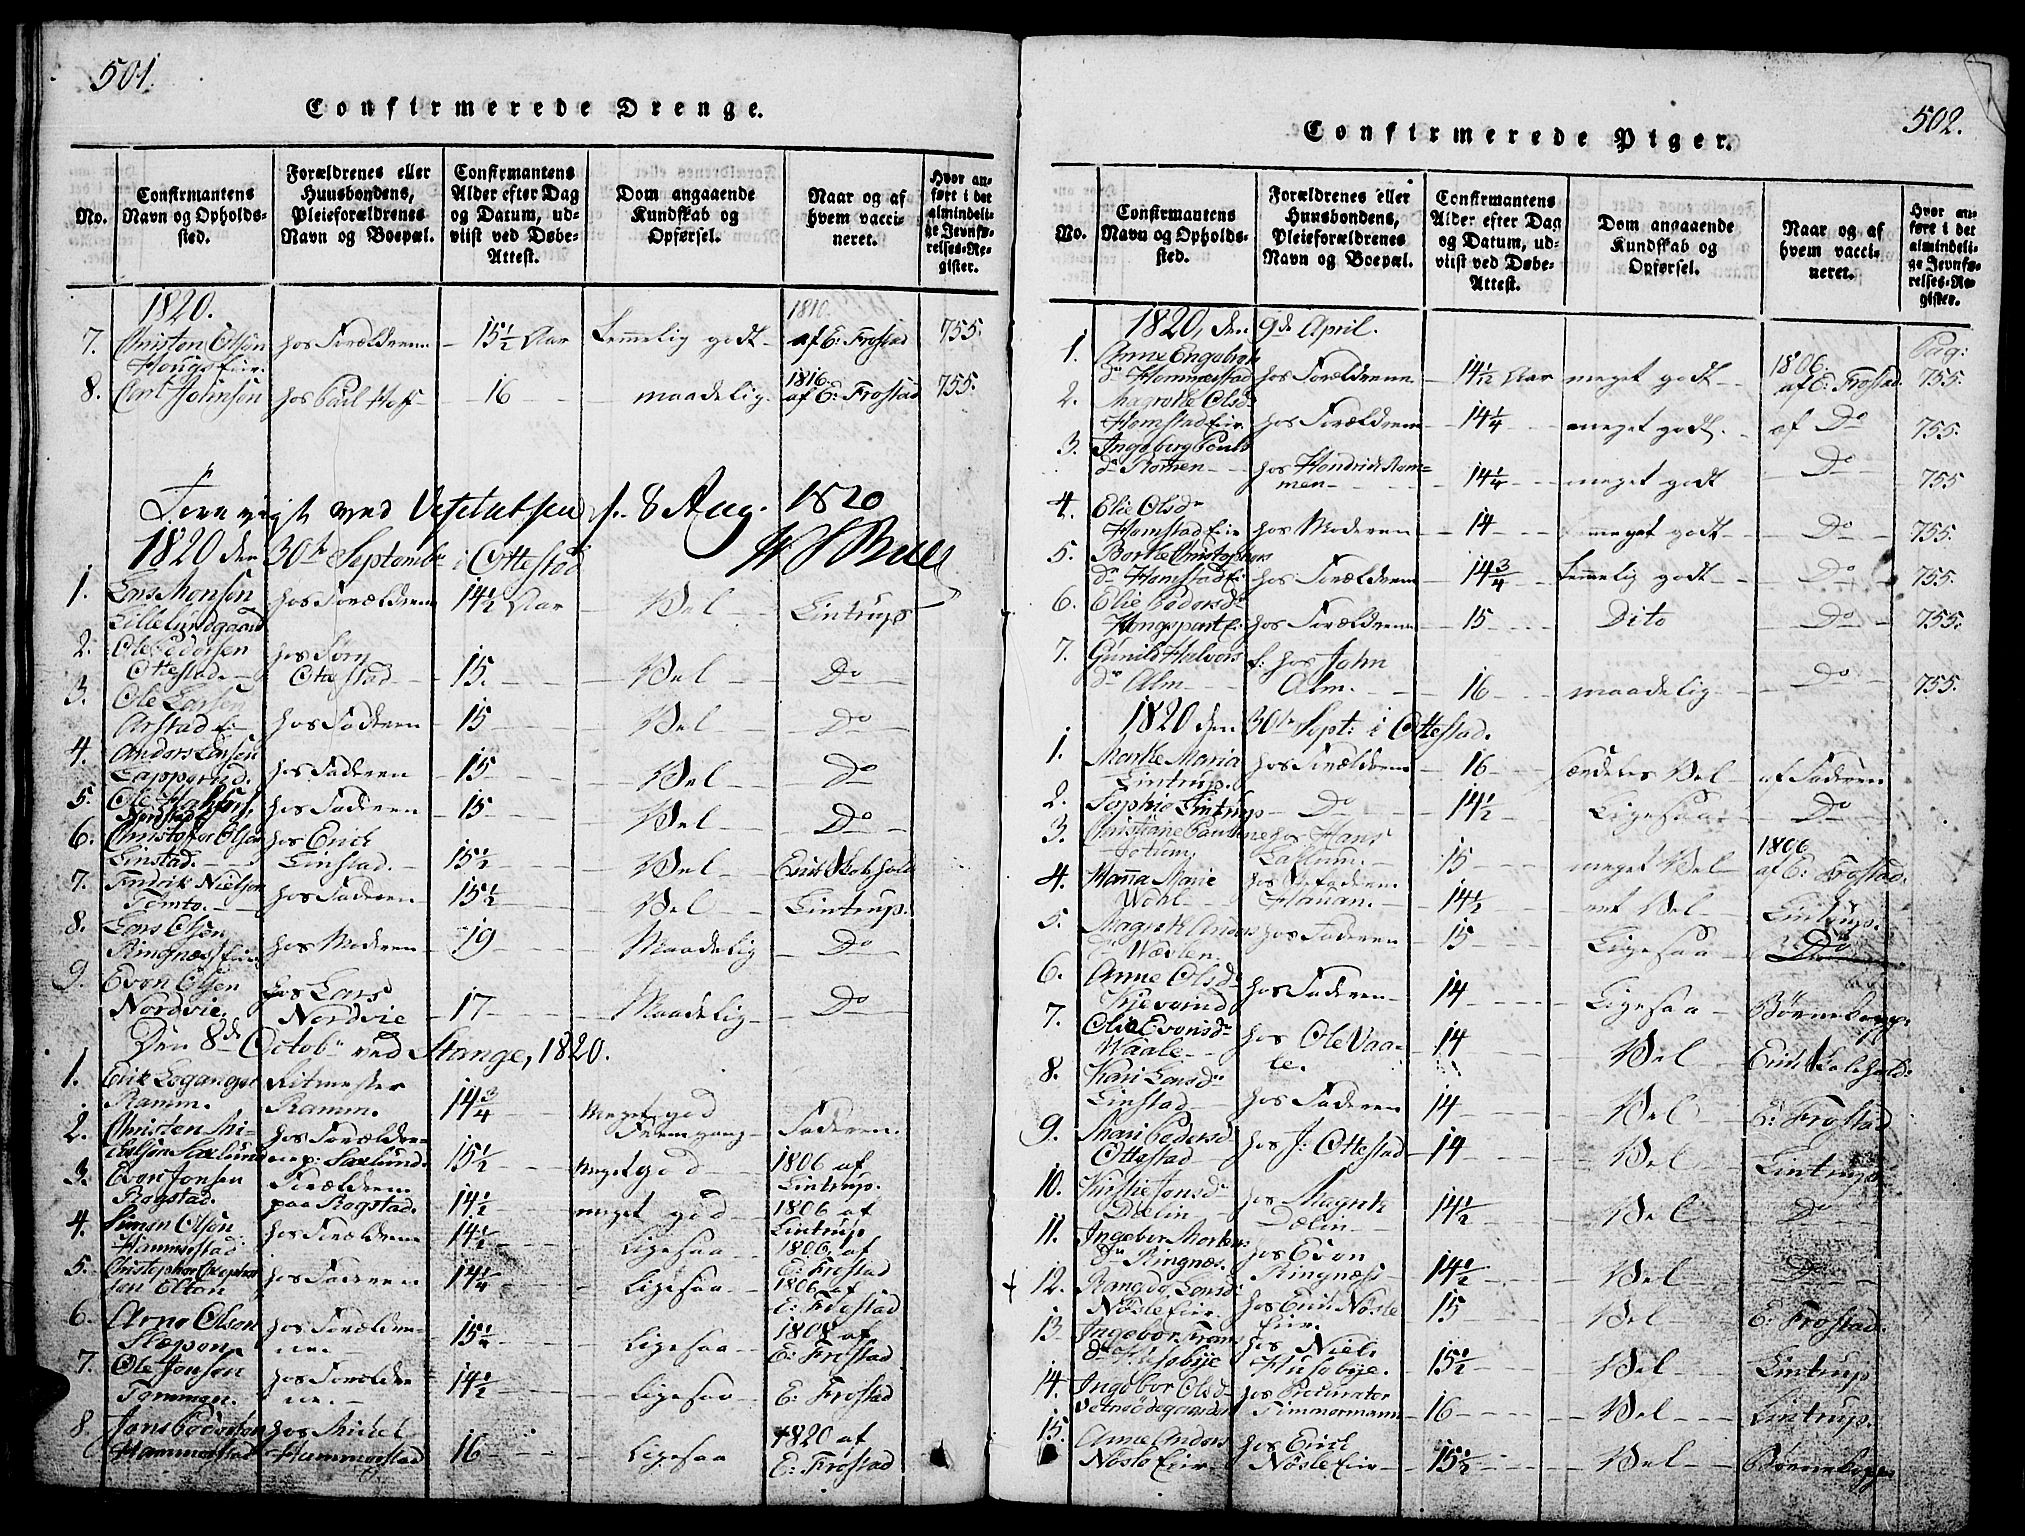 501.
Confirmerede Drenge.
No.
Confirmantens Navn og Opholdssted.
Forældrenes eller Huusbondens, Pleieforældrenes Navn og Boepæl.
Confirmantens Alder efter Dag og Datum, udviist ved Døbe-Attest.
Dom angaaende Kundskab og Opførsel.
Naar og af hvem vaccineret.
Hvor anført i det almindelige Jevnførelses-Register.
1820.
7. Christen Olsen Hougs Eier. hos Forældrene 15½ Aar temmelig godt 1810. af E: Frostad 755.
8. Carl Johnsen hos Paul Hoff 16 maadelig 1816. af E: Frostad 755.
Forevigt ved Visitatsen d. 8 Aug. 1820
1820 den 30te Septembr i Ottestad
1. Lars Monsen Lillelundgaard hos Forældrene 14½ Aar Vel Lintrup
2. Ole Pedersen Ottestad hos Sørn Ottestad 15. Vel Do
3. Ole Larsen Arstad Ei: hos Faderen 15 Vel Do
4. Anders Larsen Lappgrud. hos Faderen 15 Vel Do
5. Ole hos Faderen 15 Vel Do
6. Christoffer Olsen Linstad. hos Erich Linstad. 15½ Vel Erich
7. Fredrik Nielsen Tomto. hos Faderen 15½ Vel Lintrup.
8. Lars Olsen Ringnæs Eier hos Moderen 19 Maadelig Do
9. Even Olsen Nordvie. hos Lars Nordvie 17 Maadelig Do
Den 8de Octobr ved Stange, 1820.
1. Erik Ramm. Ritmester Ramm. 14¾ Meget god Fremgang Faderen.
2. Christen Mi- Saxlund hos Forældre- ne p: Saxlund. 15½ meget god 1806 af Lintrup.
3. Even Jonsen Rogstad. Forældrene paa Rogstad. 14½ meget god 1806 af Lintrup
4. Simen Olsen Hammerstad hos Forældrene 14½ Ligesaa 1806. af E: Frostad
5. Christopher Christopher sen Elton hos Faderen 14¼ Ligesaa 1806 af E: Frostad
6. Arne Olsen hos Forældre- ne. 15¼ Ligesaa 1808 af E: Frostad
7. Ole Jonsen Tommen. hos Forældre ne. 14½ Ligesaa E: Frostad
8. Jens Pedersen Hammerstad hos Michel Hammerstad 16 Ligesaa 1820 af E: Frostad
502.
Confirmerede Piger.
No.
Confirmantens Navn og Opholdssted.
Forældrenes eller Huusbondens, Pleieforældrenes Navn og Boepæl.
Confirmantens Alder efter Dag og Datum, udviist ved Døbe-Attest.
Dom angaaende Kundskab og Opførsel.
Naar og af hvem vaccineret.
Hvor anføre i det almindelige Jevnførelses-Register.
1820, den 9de April.
Pag:
1. Anne Engebrets dr Hommerstad hos Forældrene 14½ Aar meget godt 1806. af E: Frostad 755.
2. Magrethe Olsdr Homstad Eie. hos Forældrene 14¼ meget godt. af Do 755.
3. Ingeborg Pouls dr Romen hos Hendrick Rom- men 14¼ meget godt Do 755
4. Elie Olsdr Homstad Eie hos Moderen 14 meget godt Do 755.
5. Berthe Christophers dr Homstad Ei: hos Forældrene 14¾ temmelig godt Do 755.
6. Elie Pedersdr hos Forældrene 15 Dito Do 755.
7. Gunild Halvors dr Alm hos John Alm. 16 maadelig Do 755.
1820 den 30te Sept: i Ottestad.
1. Marthe Maria Lintrup. hos Forældrene 16 særdeles Vel af Faderen
2. Sophie Lintrup Do 14½ Ligesaa Do
3. Christiane Pauline Jotum. hos Hans Lallum. 15 meget Vel 1806 af E: Frostad.
4. Hanna Marie Wohl hos 14½ ret Vel Lintrup.
5. Magrethe Anders dr Wæslen. hos Faderen 15 Ligesaa Do
6. Anne Olsdr hos Faderen 14 Ligesaa
7. Olia Evensdr Waale hos Ole Vaa- le. 14 Vel Erich
8. Kari Larsdr Linstad hos Faderen 14 Vel E: Frostad
9. Mari Pedersdr Ottestad hos J: Ottestad 14 Vel Lintrup
10. Kirstie Jonsdr Dælin hos Magrethe Dælin 14½ Vel Do
11. Ingebor Mortens dr Ringnæs. hos Even Ringnæs 14½ Vel Do
12. Larsdr Nøsle Eie. hos Erich Nøsle Eie. 15 Vel E: Frostad.
13. Ingebor dr Husebÿe hos Niels Husebÿe. 15½ Vel Lintrup
14. Ingebor Olsdr hos Procurator Timmermann 16 Vel Lintrup.
15. Anne Anders Nøsle Eie hos Erich Nøsle Eie 15½ Vel